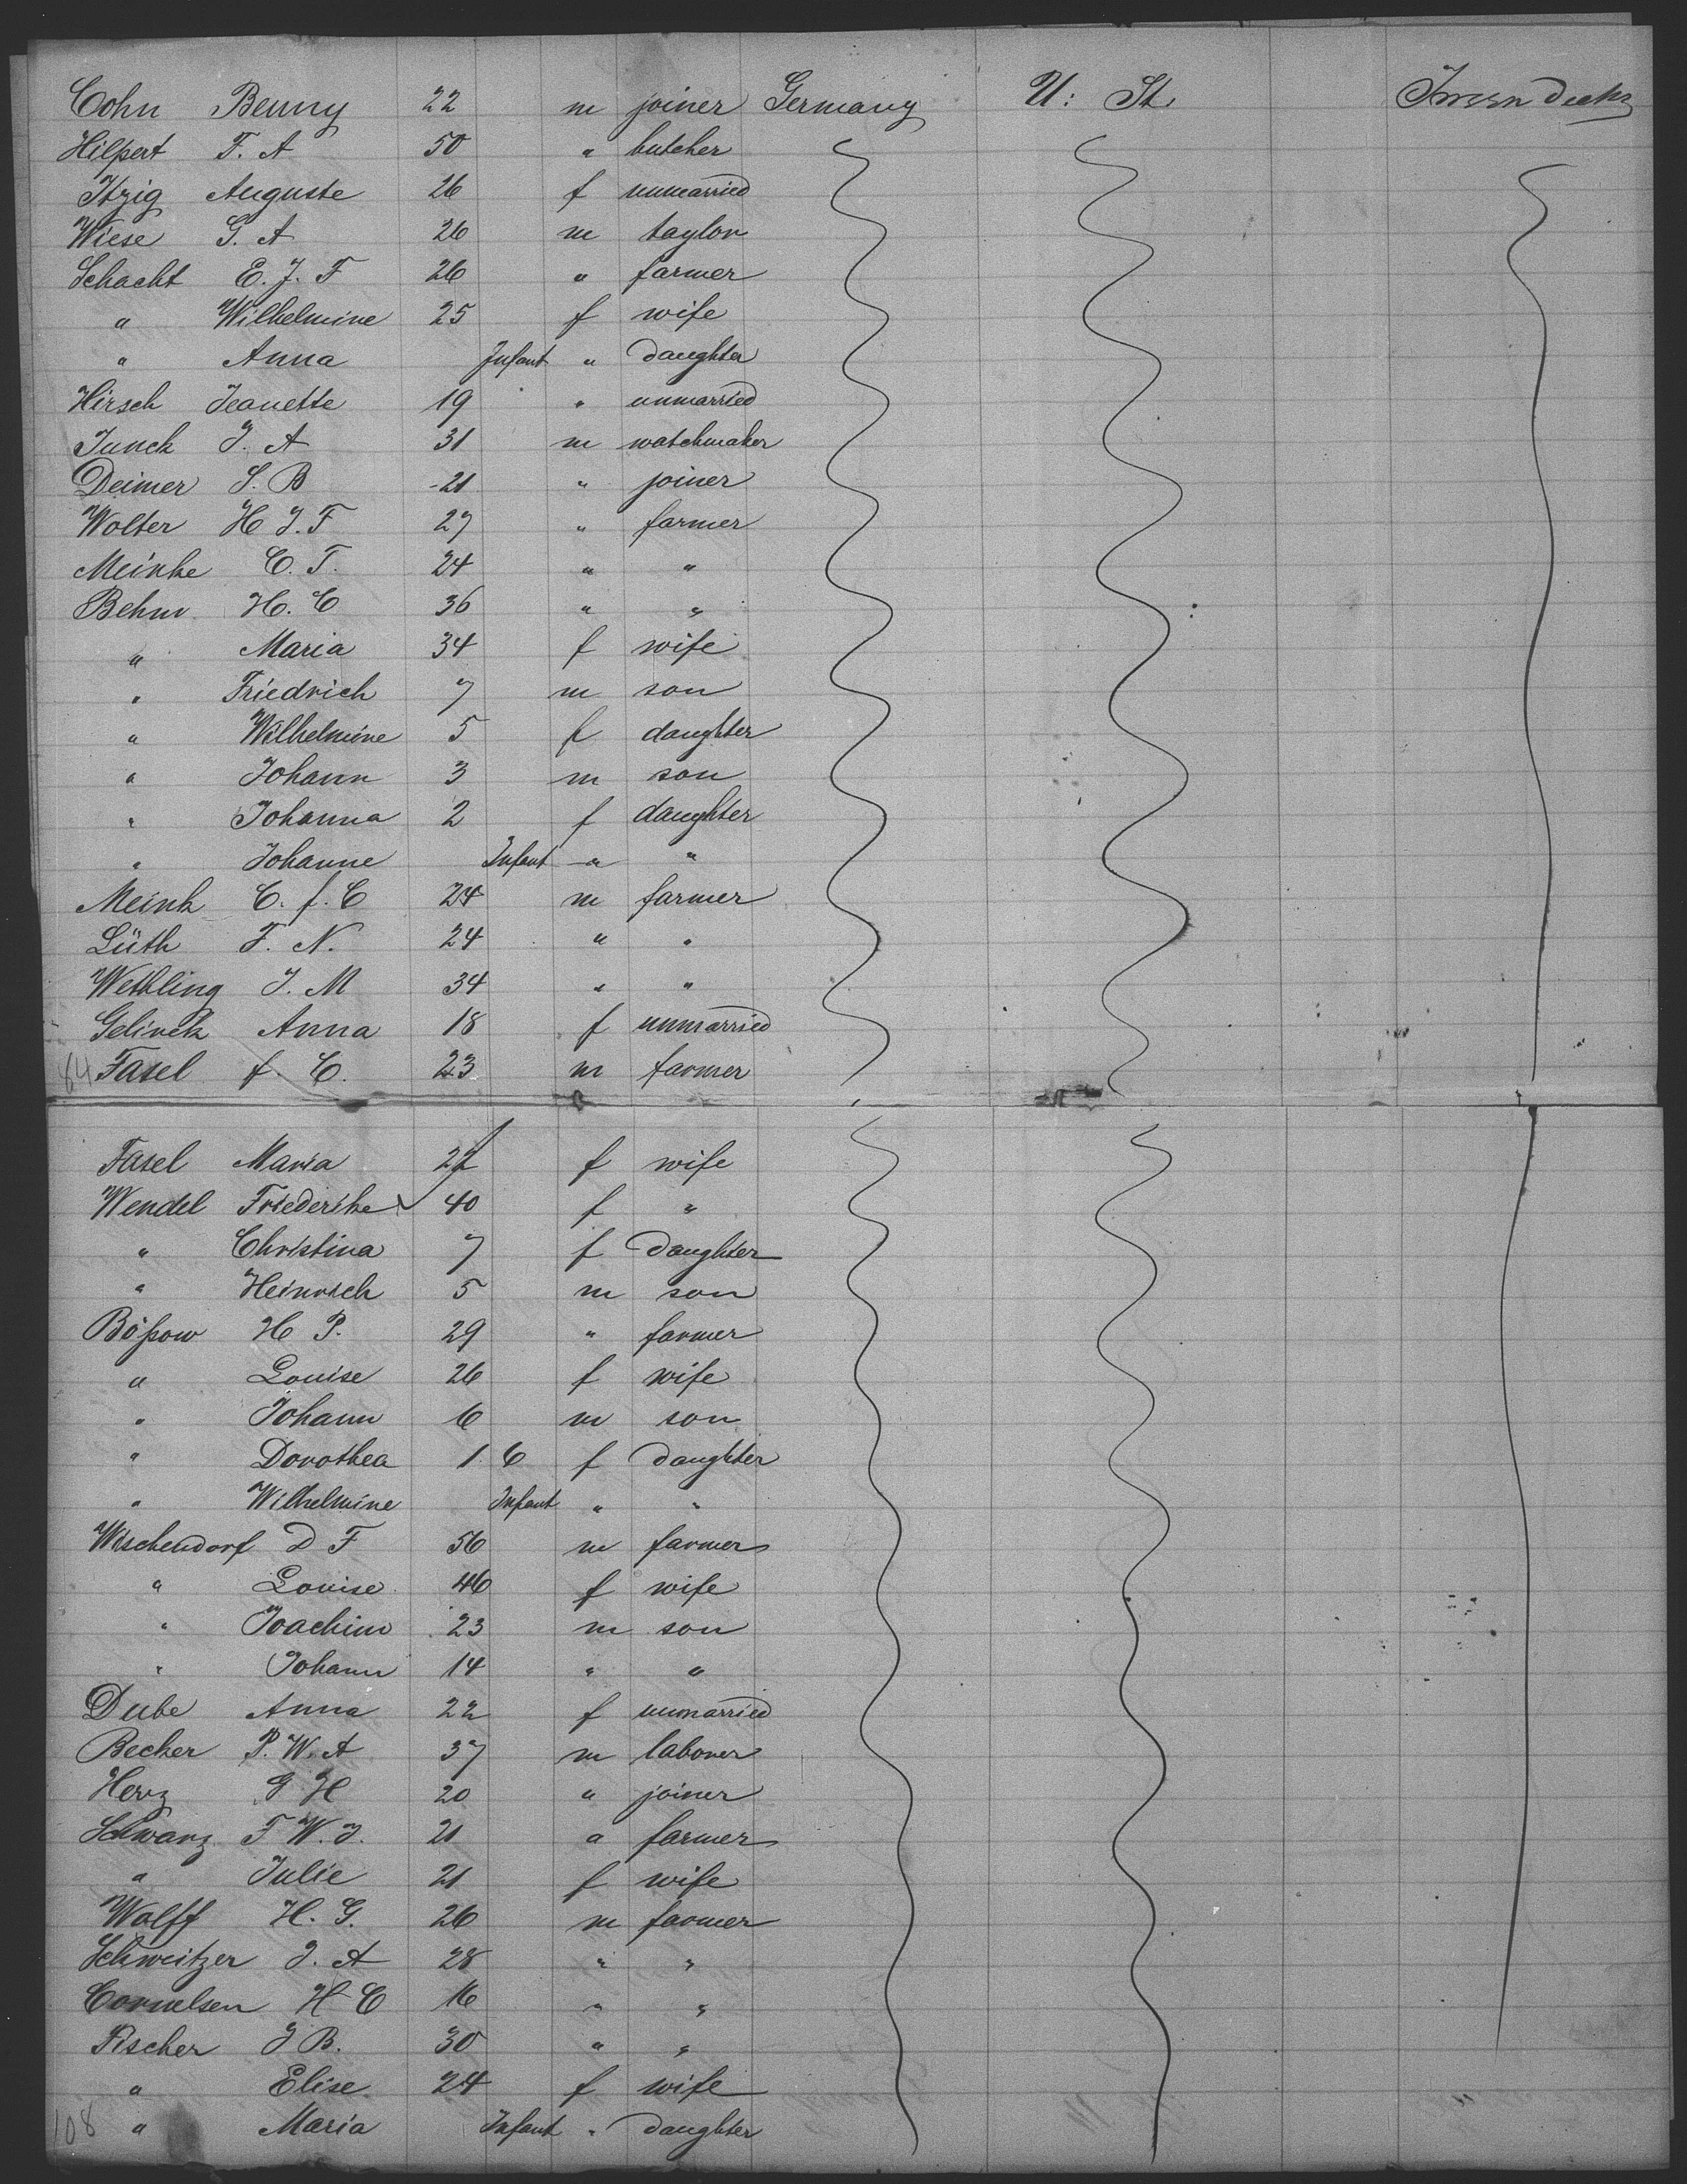 Cohn Benny 22 m joiner Germany U: St. Tween decks
Hilpert F. A 50 " butcher
Itzig Auguste 26 f unmarried
Wiese G. A 26 m taylor
Schacht E. J. F 26 " farmer
" Wilhelmine 25 f wife
" Anna Infant " daughter
Hirsch Jeanette 19 " unmarried
Junck J. A 31 m watchmaker
Deimer S. B 21 " joiner
Wolter H J. F 27 " farmer
Meinke C. T. 24 " "
Behm H. C 36 " "
" Maria 34 f wife
" Friedrich 7 m son
" Wilhelmine 5 f daughter
" Johann 3 m son
" Johanna 2 f daughter
" Johanne Infant " "
Meink C. f. C 24 m farmer
Lüth F. N. 24 " "
Wethling J. M 34 " "
Gelinek Anna 18 f unmarried
84 Fasel f. C. 23 m farmer
Fasel Maria 27 f wife
Wendel Friederike 40 f "
" Christina 7 f daughter
" Heinrich 5 m son
Bößow H P. 29 " farmer
" Louise 26 f wife
" Johann 6 m son
" Dorothea 1 6 f daughter
" Wilhelmine Infant " "
Wischendorf D F 56 m farmer
" Louise 46 f wife
" Joachim 23 m son
" Johann 14 " "
Dube Anna 22 f unmarried
Becker P. W. A 37 m laborer
Herz G H 20 " joiner
Schwarz F W. J. 21 " farmer
" Julie 21 f wife
Wolff H. G. 26 m farmer
Schweitzer J. A 28 " "
Cornelsen H C 16 " "
Fischer J B. 30 " "
" Elise 24 f wife
108 " Maria Infant " daughter